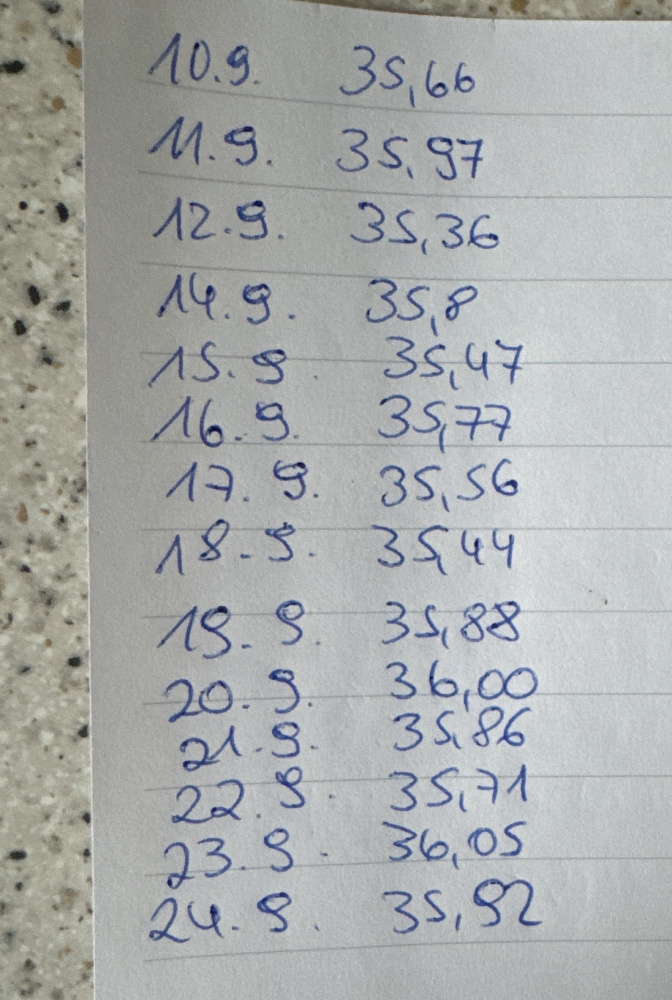 10.9. 35,66
11.9. 35,97
12.9. 35,36
14.9. 35,8
15.9. 35,47
16.9. 35,77
17.9. 35,56
18.9. 35,44
19.9. 35,88
20.9. 36,00
21.9. 35,86
22.9. 35,71
23.9. 36,05
24.9. 35,92